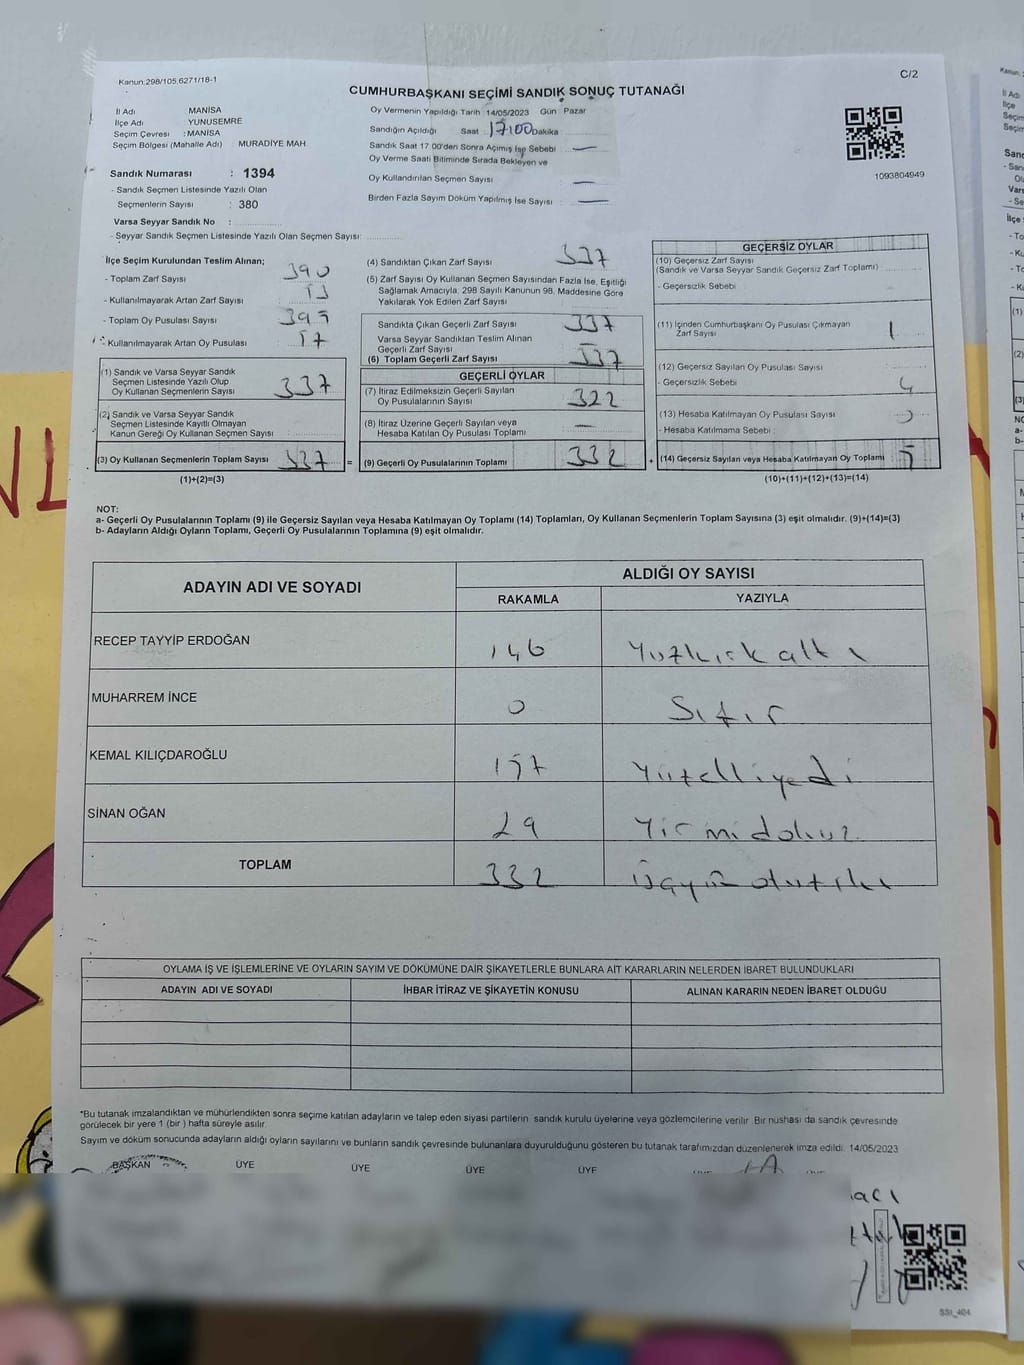 Kanun:298/105,6271/18-1
C/2
CUMHURBAŞKANI SEÇİMİ SANDIK SONUÇ TUTANAĞI
İl Adı : MANİSA
İlçe Adı : YUNUSEMRE
Seçim Çevresi : MANİSA
Seçim Bölgesi (Mahalle Adı) : MURADİYE MAH.
Sandık Numarası : 1394
- Sandık Seçmen Listesinde Yazılı Olan
Seçmenlerin Sayısı : 380
Varsa Seyyar Sandık No :
- Seyyar Sandık Seçmen Listesinde Yazılı Olan Seçmen Sayısı:
Oy Vermenin Yapıldığı Tarih 14/05/2023 Gün Pazar
Sandığın Açıldığı Saat 17:00 Dakika
Sandık Saat 17 00'den Sonra Açımış İse Sebebi : —
Oy Verme Saati Bitiminde Sırada Bekleyen ve
Oy Kullandırılan Seçmen Sayısı : —
Birden Fazla Sayım Döküm Yapılmış İse Sayısı : —
1093804949
İlçe Seçim Kurulundan Teslim Alınan;
- Toplam Zarf Sayısı : 390
- Kullanılmayarak Artan Zarf Sayısı :
- Toplam Oy Pusulası Sayısı : 395
- Kullanılmayarak Artan Oy Pusulası :
(1) Sandık ve Varsa Seyyar Sandık
Seçmen Listesinde Yazılı Olup
Oy Kullanan Seçmenlerin Sayısı : 337
(2) Sandık ve Varsa Seyyar Sandık
Seçmen Listesinde Kayıtlı Olmayan
Kanun Gereği Oy Kullanan Seçmen Sayısı :
(3) Oy Kullanan Seçmenlerin Toplam Sayısı : 337 =
(1)+(2)=(3)
(4) Sandıktan Çıkan Zarf Sayısı : 337
(5) Zarf Sayısı Oy Kullanan Seçmen Sayısından Fazla İse, Eşitliği
Sağlamak Amacıyla; 298 Sayılı Kanunun 98. Maddesine Göre
Yakılarak Yok Edilen Zarf Sayısı :
Sandıkta Çıkan Geçerli Zarf Sayısı : 337
Varsa Seyyar Sandıktan Teslim Alınan
Geçerli Zarf Sayısı
(6) Toplam Geçerli Zarf Sayısı : 337
GEÇERLİ OYLAR
(7) İtiraz Edilmeksizin Geçerli Sayılan
Oy Pusulalarının Sayısı : 322
(8) İtiraz Üzerine Geçerli Sayılan veya
Hesaba Katılan Oy Pusulası Toplamı : —
(9) Geçerli Oy Pusulalarının Toplamı : 332 +
GEÇERSİZ OYLAR
(10) Geçersiz Zarf Sayısı
(Sandık ve Varsa Seyyar Sandık Geçersiz Zarf Toplamı)
- Geçersizlik Sebebi :
(11) İçinden Cumhurbaşkanı Oy Pusulası Çıkmayan
Zarf Sayısı : 1
(12) Geçersiz Sayılan Oy Pusulası Sayısı
- Geçersizlik Sebebi : 4
(13) Hesaba Katılmayan Oy Pusulası Sayısı
- Hesaba Katılmama Sebebi :
(14) Geçersiz Sayılan veya Hesaba Katılmayan Oy Toplamı : 5
(10)+(11)+(12)+(13)=(14)
NOT:
a- Geçerli Oy Pusulalarının Toplamı (9) ile Geçersiz Sayılan veya Hesaba Katılmayan Oy Toplamı (14) Toplamları, Oy Kullanan Seçmenlerin Toplam Sayısına (3) eşit olmalıdır. (9)+(14)=(3)
b- Adayların Aldığı Oyların Toplamı, Geçerli Oy Pusulalarının Toplamına (9) eşit olmalıdır.
ADAYIN ADI VE SOYADI
ALDIĞI OY SAYISI
RAKAMLA YAZIYLA
RECEP TAYYİP ERDOĞAN 146 Yüzkırkaltı
MUHARREM İNCE 0 Sıfır
KEMAL KILIÇDAROĞLU 157 Yüzelliyedi
SİNAN OĞAN 29 Yirmidokuz
TOPLAM 332 üçyüzotuziki
OYLAMA İŞ VE İŞLEMLERİNE VE OYLARIN SAYIM VE DÖKÜMÜNE DAİR ŞİKAYETLERLE BUNLARA AİT KARARLARIN NELERDEN İBARET BULUNDUKLARI
ADAYIN ADI VE SOYADI İHBAR İTİRAZ VE ŞİKAYETİN KONUSU ALINAN KARARIN NEDEN İBARET OLDUĞU
*Bu tutanak imzalandıktan ve mühürlendikten sonra seçime katılan adayların ve talep eden siyasi partilerin sandık kurulu üyelerine veya gözlemcilerine verilir. Bir nüshası da sandık çevresinde
görülecek bir yere 1 (bir ) hafta süreyle asılır.
Sayım ve döküm sonucunda adayların aldığı oyların sayılarını ve bunların sandık çevresinde bulunanlara duyurulduğunu gösteren bu tutanak tarafımızdan düzenlenerek imza edildi. 14/05/2023
BAŞKAN ÜYE ÜYE ÜYE ÜYE
SSI_404